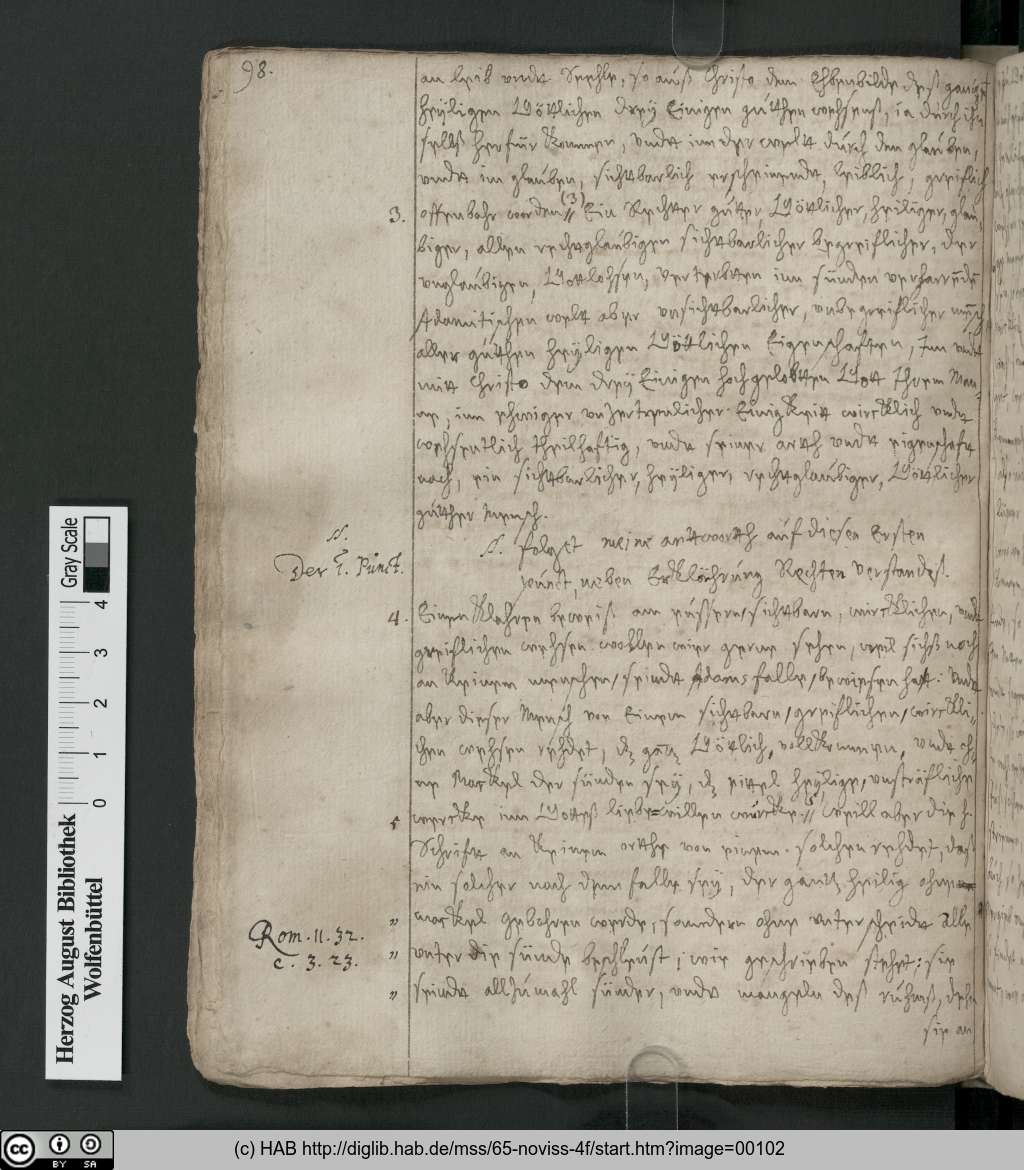 98.
an leib vndt Seehle, so auß Christo dem Ebenbilde deß gantzen
heÿligen Göttlichen dreÿ Einigen gutten wehsenß, ia durch ihn
selbß herfür kommen, vndt inn der welt durch den glauben,
vndt im glauben, sichtbarlich erscheinendt, leiblich, greiflich
3. offenbahr worden // (3) Ein Rechter gutter, Göttlicher, heiliger, glau„
biger, allen rechtglaubigen sichtbarlicher begreiflicher, der
vnglaubigen, Gottlohsen, verterbten inn sünden verharrende
Adamitischen welt aber vnsichtbarlicher, vnbegreiflicher mensch
aller gutten heÿligen Göttlichen Eigenschaften, Inn vndt
mitt Christo dem dreÿ Einigen hochgelobten Gott
in ehwiger vnzertrenlicher Einigkeitt wircklich vndt
wehsentlich theilhaftig, vndt seiner arth vndt eigenschaft
nach, ein sichtbarlicher, heÿliger, rechtglaubiger, Göttlicher
gutter Mensch.
N.
Der 1. Punct.
N. folget meine antworth auf diesen Ersten
punct, neben Erklährung Rechten verstandeß.
4. Einen Klahren beweiß. am eüssern/sichtbarn, wircklichen, vndt
greiflichen wehsen wollen wier gerne sehen, weil sichß noch
an keinem menschen/seindt Adams falle/beweisen hatt: Vndt
aber dieser Mensch von Einem sichtbarn/greiflichen/wirckli„
chen wehsen rehdet, dz gantz Göttlich, vollkommen, vndt oh„
ne Mackel der sünden seÿ, dz eittel heÿlige, vnsträfliche
5 wercke inn Gotteß liebe=willen würcke: // 5 Weill aber die h.
Schrift an keinem orthe von einem solchen rehdet, daß
ein solcher nach dem falle seÿ, der gantz heilig ohne
" mackel gebohren werde, sondern ohne vnterscheidt alle
Rom. 11. 32.
" vnter die sünde beschleust, wie geschrieben stehet: sie
c. 3. 23.
" seindt allzumahl sünder, vndt mangeln deß ruhmß, dehn
sie an
Gray Scale
4
3
2
1
0
Herzog August Bibliothek
Wolfenbüttel
cc
BY SA
(c) HAB http://diglib.hab.de/mss/65-noviss-4f/start.htm?image=00102